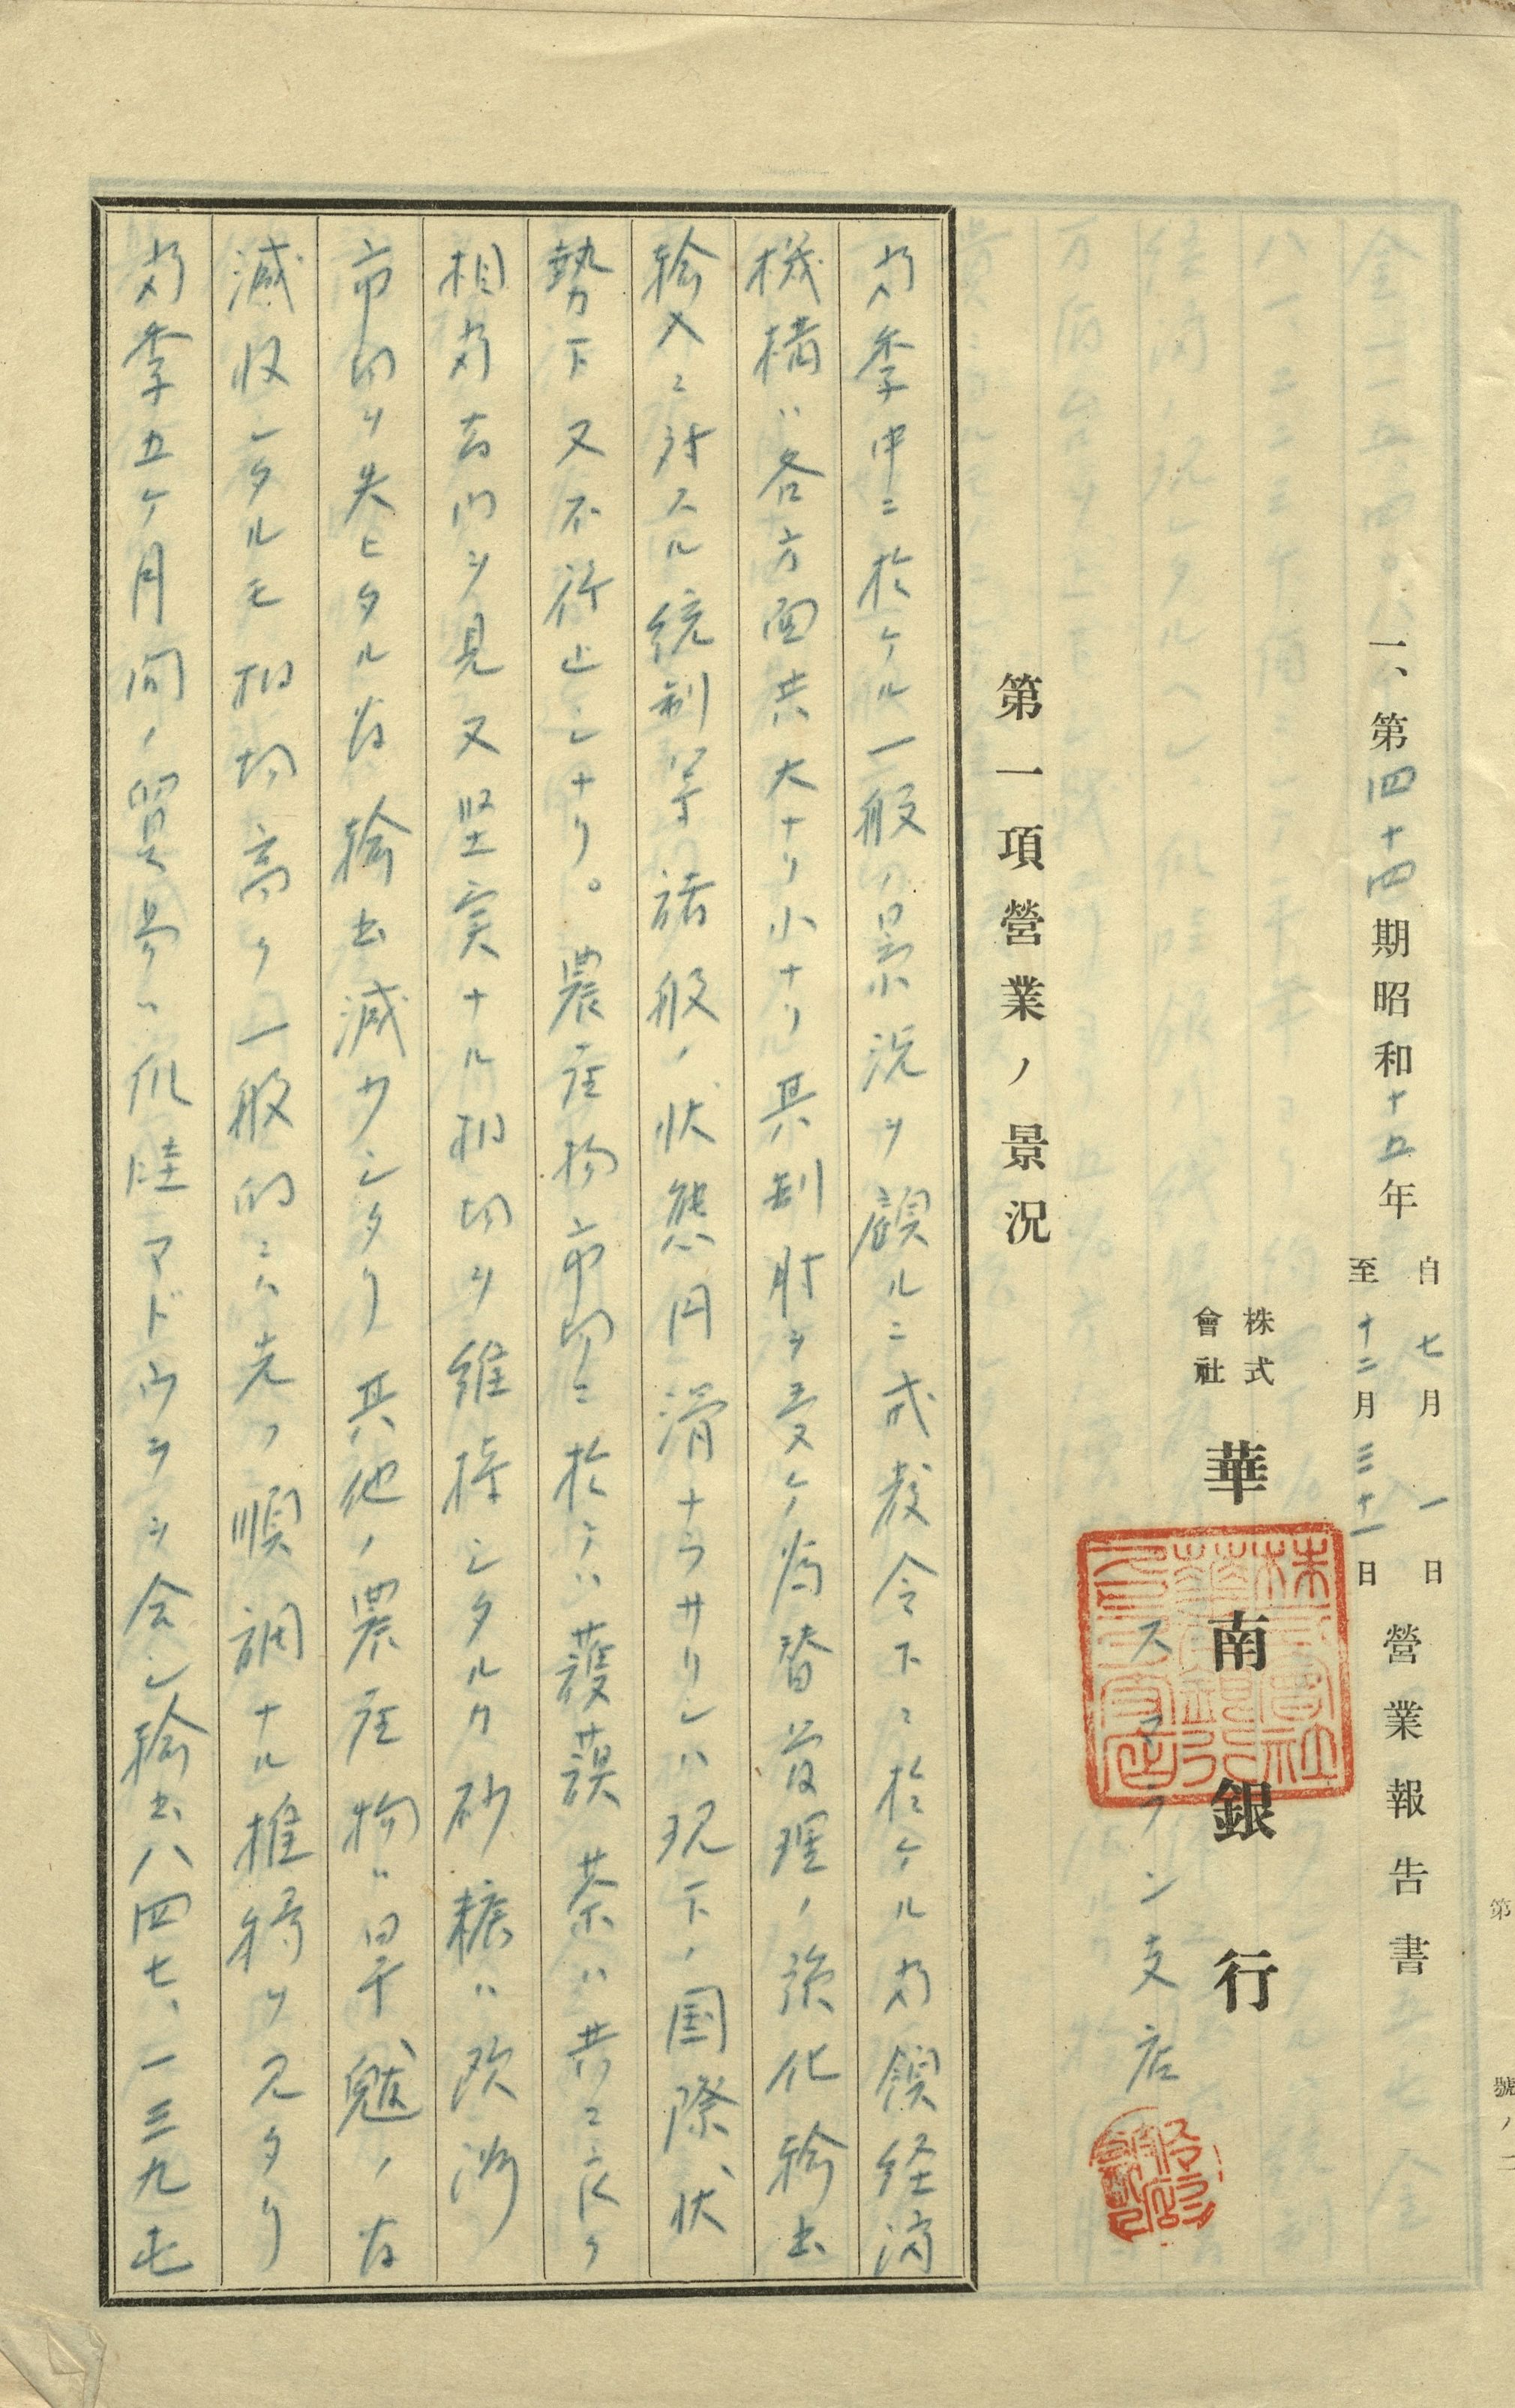 第 號ノ二
一、第四十四期昭和十五年 自七月一日 至十二月三十一日 營業報告書
株式會社 華南銀行
スマラン支店
第一項營業ノ景況
当季中ニ於ケル一般ノ景況ヲ顧ルニ戒厳令下ニ於ケル当領経済
機構ハ各方面共大ナリ小ナリ其制肘ヲ受ケ為替管理ノ強化輸出
輸入ニ対スル統制等諸般ノ状態円滑ナラサリシハ現下ノ国際状
勢下又不得止シナリ。農産物市場ニ於テハ護謨茶ハ共ニ良ク
相当出門ヲ見又堅実ナル相場ヲ維持シタルカ砂糖ハ欧洲
市場ヲ失ヒタル為輸出減少シタリ其他ノ農産物ハ旱魃ノ為
減収シタルモ相場高ク一般的ニハ先ツ順調ナル推移ヲ見タリ
当季五ケ月間ノ貿易ハ爪哇マドウラヲ会シ輸出八四七、一三九屯